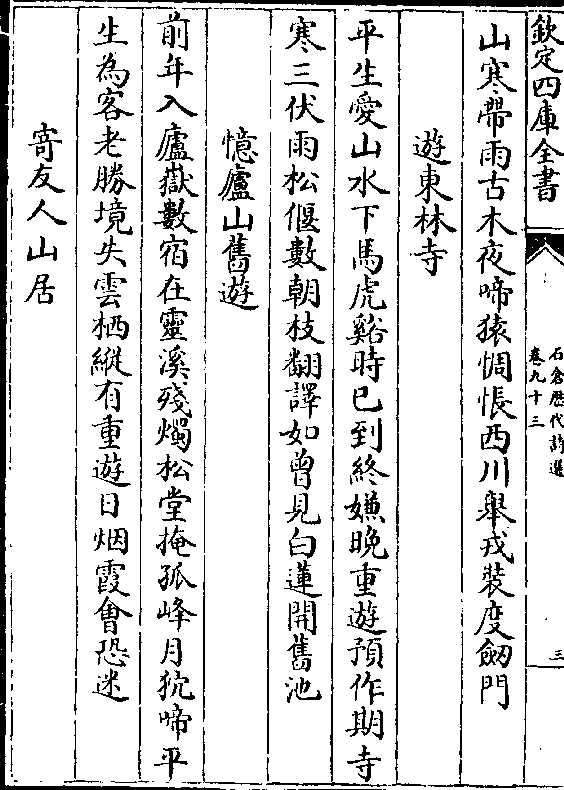 欽定四庫全書
石倉歴代詩選
卷九十三
三
山寒帶雨古木夜啼猿惆悵西川舉戎裝度劒門
遊東林寺
平生愛山水下馬虎谿時已到終嫌晚重遊預作期寺
寒三伏雨松偃數朝枝翻譯如曾見白蓮開舊池
憶廬山舊遊
前年入廬嶽數宿在靈溪殘燭松堂掩孤峰月狖啼平
生為客老勝境失雲栖縱有重遊日烟霞會恐迷
寄友人山居